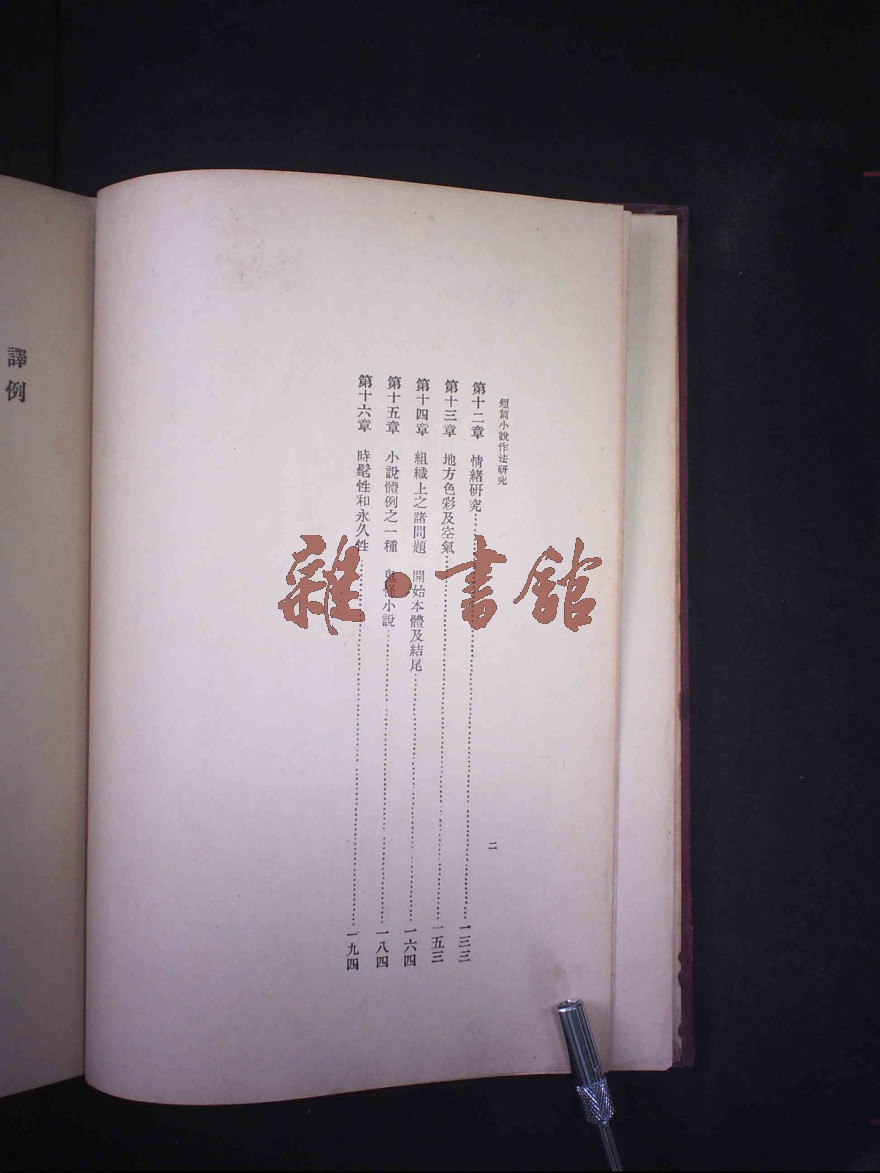 短篇小說作法研究
二
第十二章 情緒研究……一三三
第十三章 地方色彩及空氣……一五三
第十四章 組織上之諸問題 開始本體及結尾……一六四
第十五章 小說體例之一種 鬼怪小說……一八四
第十六章 時髦性和永久性……一九四
譯例
雜·書館